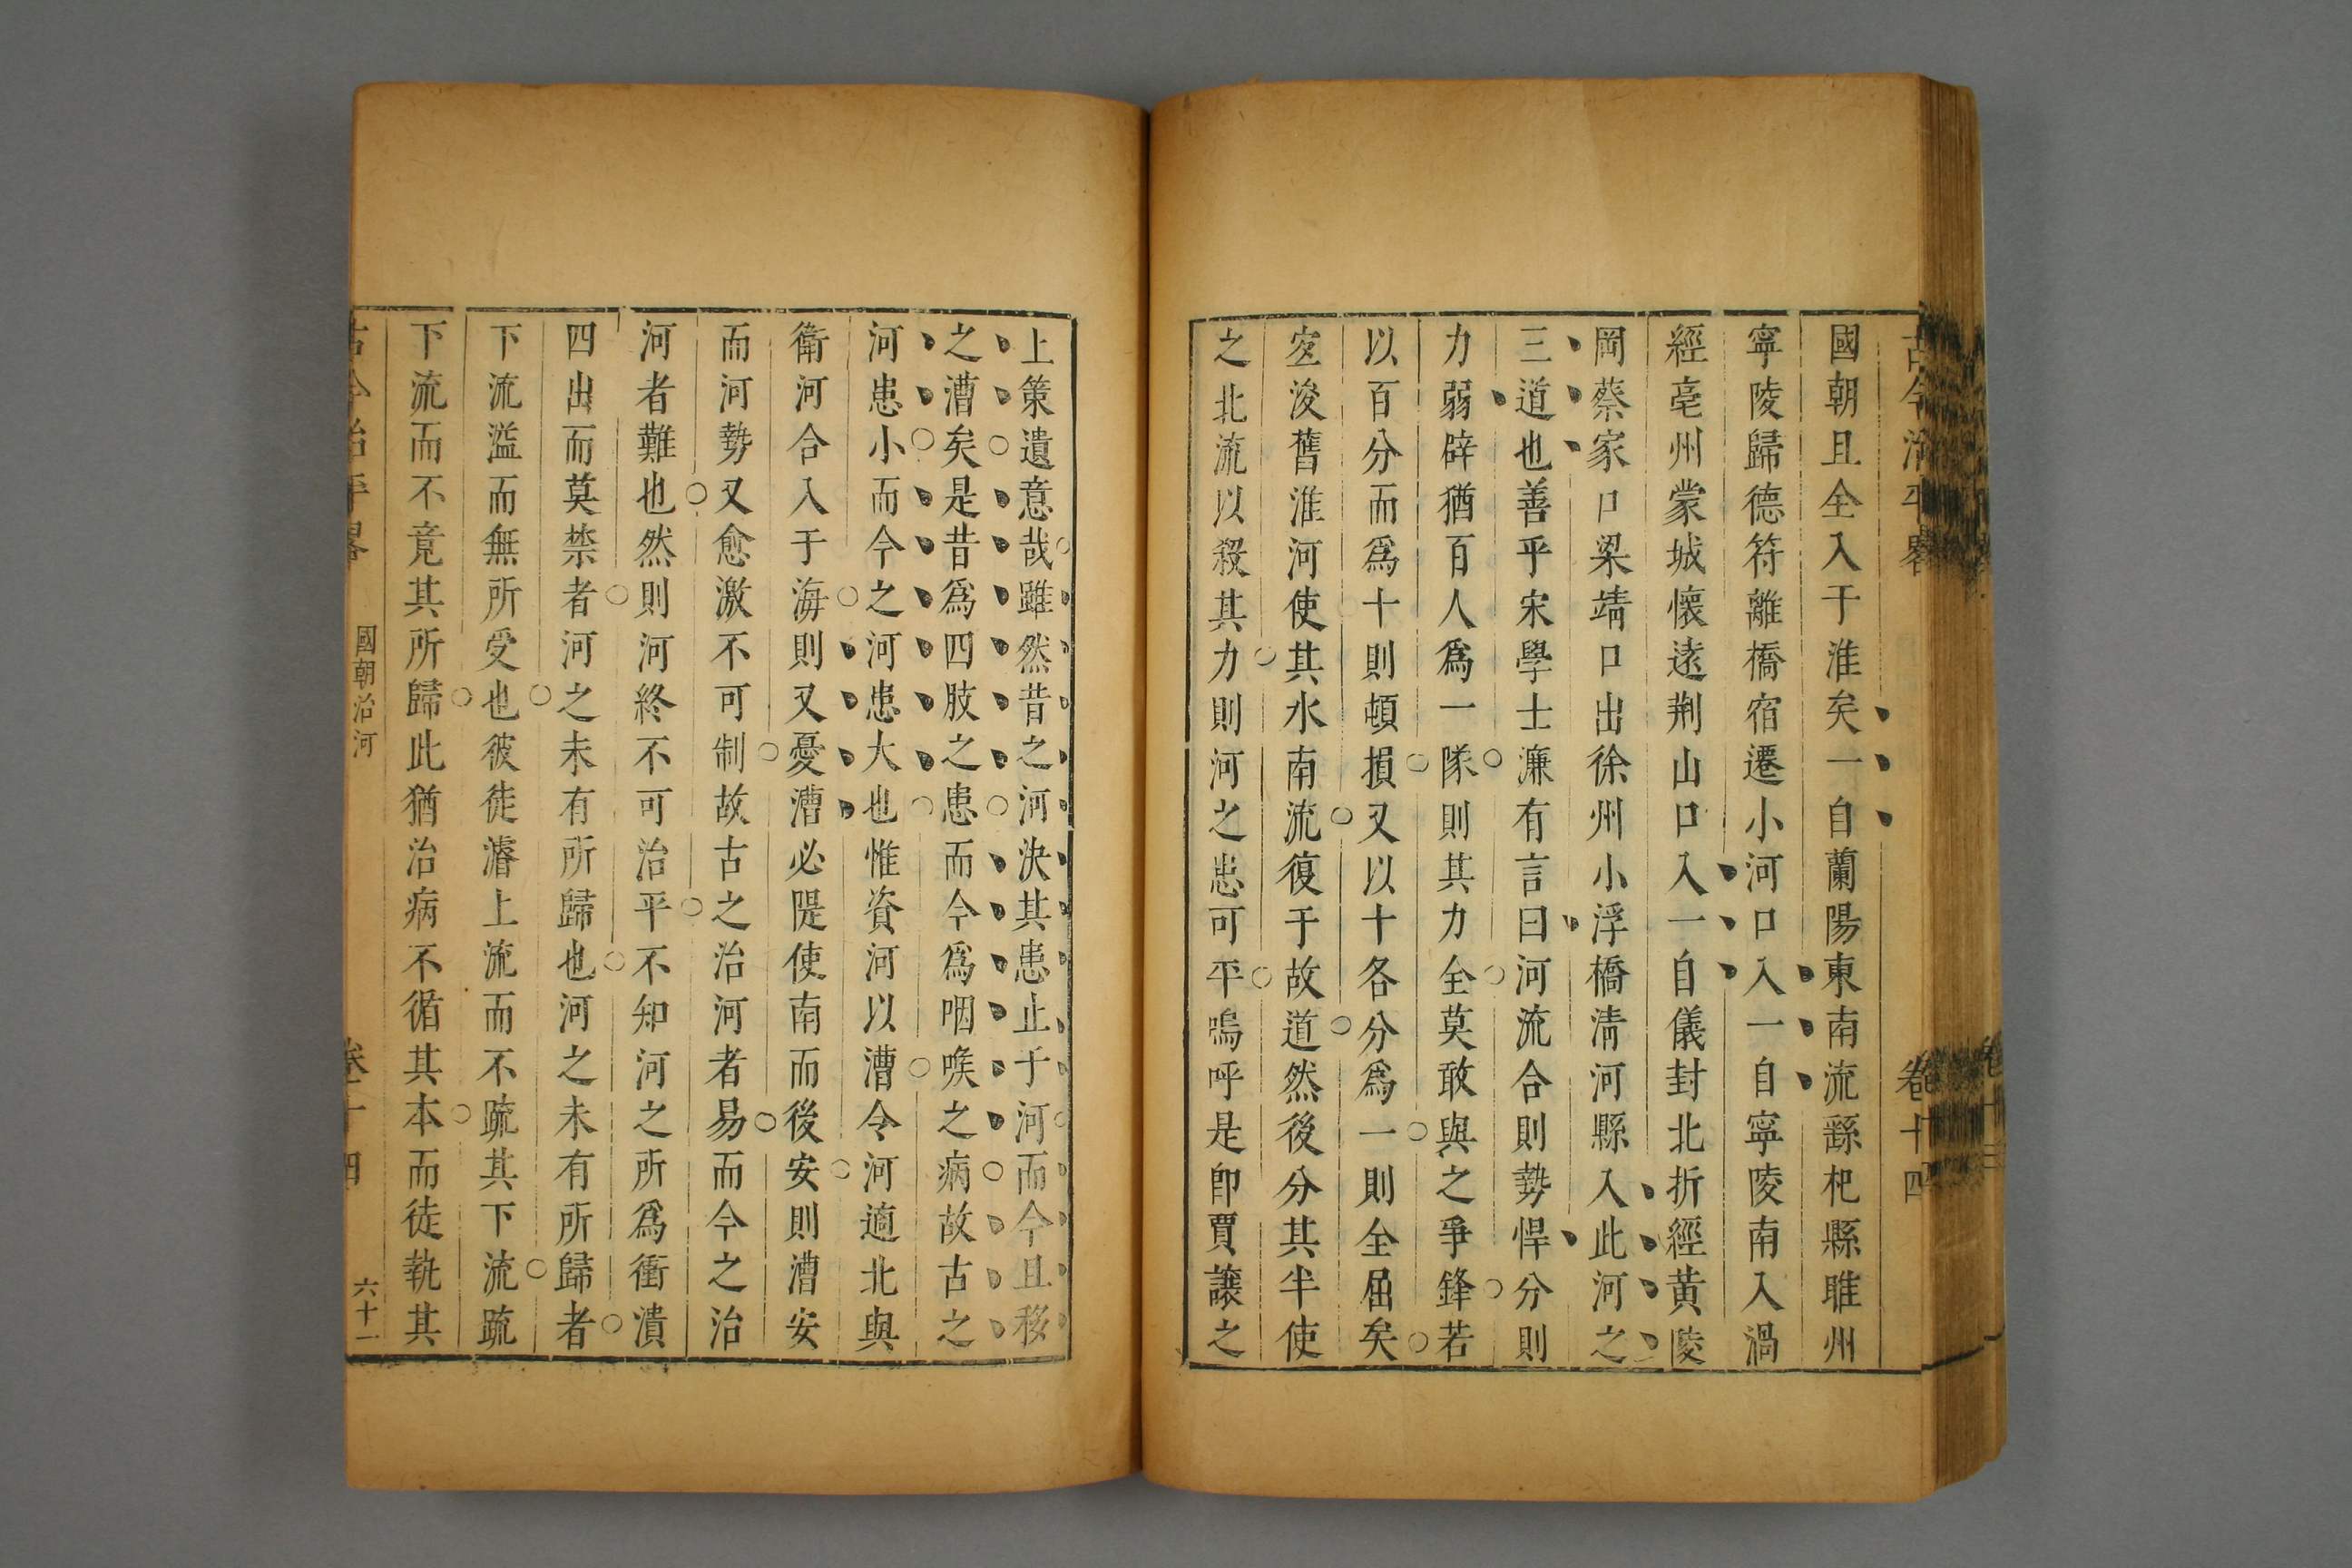 古今治平畧
卷十四
國朝且全入于淮矣一自蘭陽東南流繇杞縣睢州
寧陵歸德符離橋宿遷小河口入一自寧陵南入渦
經亳州蒙城懷遠荆山口入一自儀封北折經黃陵
岡蔡家口梁靖口出徐州小浮橋淸河縣入此河之
三道也善乎宋學士濂有言曰河流合則勢悍分則
力弱辟猶百人爲一隊則其力全莫敢與之爭鋒若
以百分而爲十則頓損又以十各分爲一則全屈矣
浚舊淮河使其水南流復于故道然後分其半使
之北流以殺其力則河之患可平嗚呼是卽賈讓之
上策遺意哉雖然昔之河決其患止于河而今且移
之漕矣是昔爲四肢之患而今爲咽喉之病故古之
河患小而今之河患大也惟資河以漕令河適北與
衛河合入于海則又憂漕必隄使南而後安則漕安
而河勢又愈激不可制故古之治河者易而今之治
河者難也然則河終不可治平不知河之所爲衝潰
四出而莫禁者河之未有所歸也河之未有所歸者
下流溢而無所受也彼徒濬上流而不疏其下流疏
下流而不竟其所歸此猶治病不循其本而徒執其
古今治平畧
國朝治河
卷十四
六十一